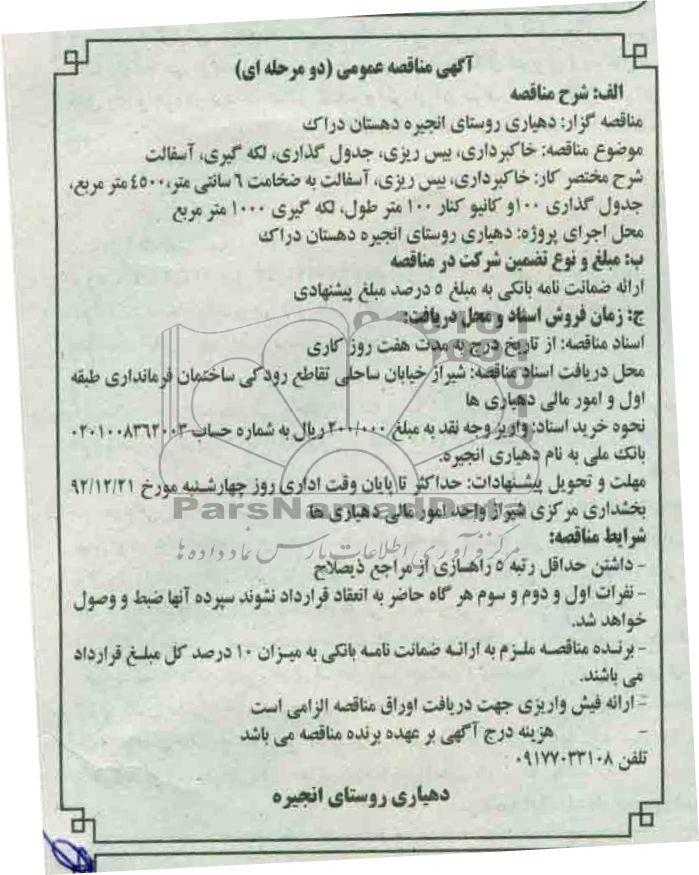 آگهی مناقصه عمومی (دو مرحله ای)
الف: شرح مناقصه
مناقصه گزار: دهیاری روستای انجیره دهستان دراک
موضوع مناقصه: خاکبرداری، بیس ریزی، جدول گذاری، لکه گیری، آسفالت
شرح مختصر کار: خاکبرداری، بیس ریزی، آسفالت به ضخامت ٦ سانتی متر، ٤٥٠٠ متر مربع،
جدول گذاری ۱۰۰ و کانیو کنار ۱۰۰ متر طول، لکه گیری ۱۰۰۰ متر مربع
محل اجرای پروژه: دهیاری روستای انجیره دهستان دراک
ب: مبلغ و نوع تضمین شرکت در مناقصه
ارائه ضمانت نامه بانکی به مبلغ ۵ درصد مبلغ پیشنهادی
ج: زمان فروش اسناد و محل دریافت:
اسناد مناقصه: از تاریخ درج به مدت هفت روز کاری
محل دریافت اسناد مناقصه: شیراز خیابان ساحلی تقاطع رودکی ساختمان فرمانداری طبقه
اول و امور مالی دهیاری ها
نحوه خرید اسناد: واریز وجه نقد به مبلغ ۲۰۰/۰۰۰ ریال به شماره حساب ۰۲۰۱۰۰۸۳٦۲۰۰۳
بانک ملی به نام دهیاری انجیره.
مهلت و تحویل پیشنهادات: حداکثر تا پایان وقت اداری روز چهارشنبه مورخ ۹۲/۱۲/۲۱
بخشداری مرکزی شیراز واحد امور مالی دهیاری ها
ParsNamadData
مرکز فرآوری اطلاعات پارس نماد داده ها
شرایط مناقصه:
- داشتن حداقل رتبه ۵ راهسازی از مراجع ذیصلاح
- نفرات اول و دوم و سوم هر گاه حاضر به انعقاد قرارداد نشوند سپرده آنها ضبط و وصول
خواهد شد.
- برنده مناقصه ملزم به ارائه ضمانت نامه بانکی به میزان ۱۰ درصد کل مبلغ قرارداد
می باشند.
- ارائه فیش واریزی جهت دریافت اوراق مناقصه الزامی است
- هزینه درج آگهی بر عهده برنده مناقصه می باشد
تلفن ۰۹۱۷۷۰۳۳۱۰۸
دهیاری روستای انجیره